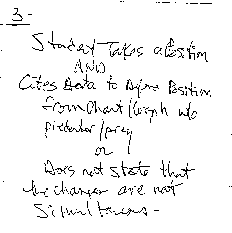 3-
Student Takes a Position
AND
Cites Data to Define Position
from Chart/Graph w/o
predator/prey
or
Does not state that
the changes are not
Simultaneous-